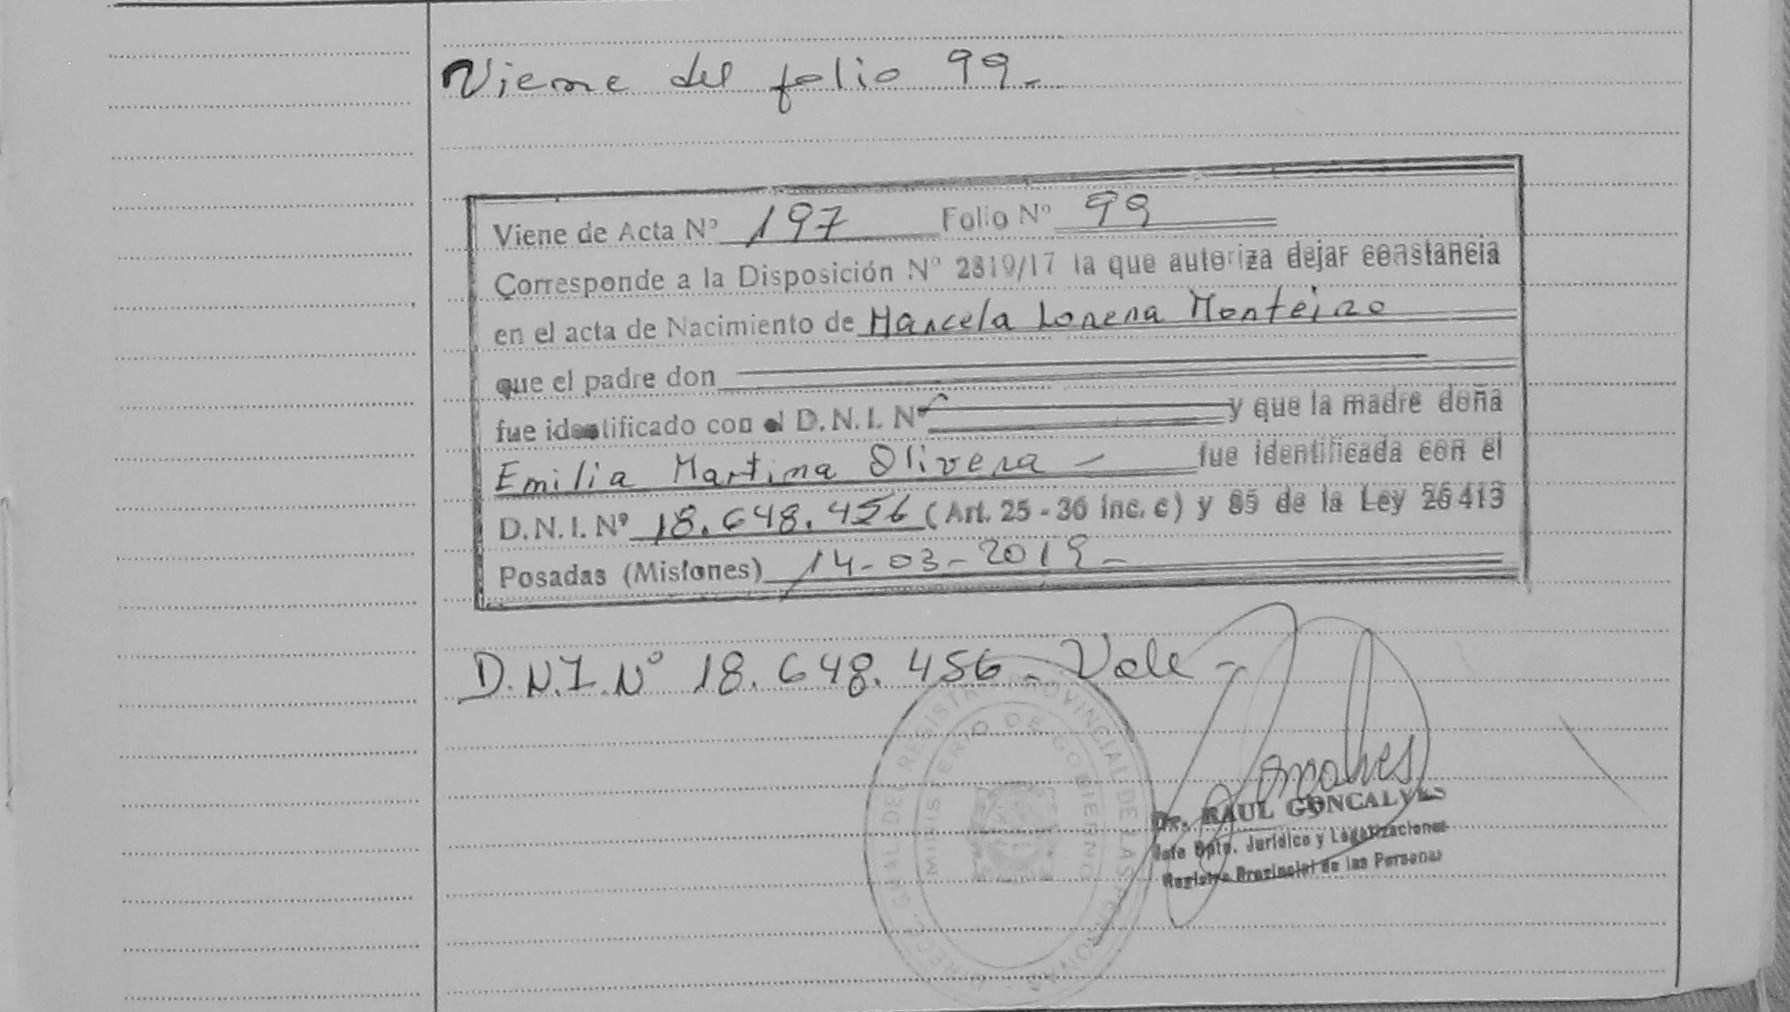 Viene del folio 99-
Viene de Acta Nº 197 Folio Nº 99
Corresponde a la Disposición Nº 2319/17 la que autoriza dejar constancia
en el acta de Nacimiento de Marcela Lorena Monteiro
que el padre don
fue identificado con el D.N.I. Nº y que la madre doña
Emilia Martina Olivera - fue identificada con el
D.N.I. Nº 18.648.456 (Art. 25 - 36 inc. c) y 85 de la Ley 26413
Posadas (Misiones) 14-03-2019-
D.N.I. Nº 18.648.456 - Vale -
Goncalves
Dr. RAUL GONCALVES
Jefe Dpto. Jurídico y Legalizaciones
Registro Provincial de las Personas
GRAL DEL REGISTRO PROVINCIAL DE LAS PERSONAS
MINISTERIO DE GOBIERNO